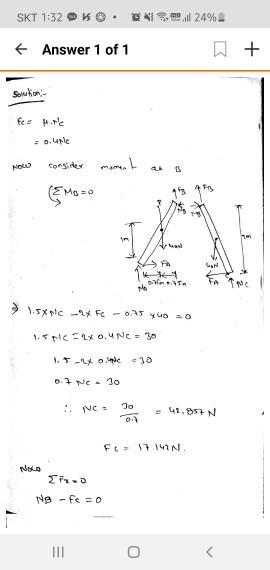 SKT 1:32 24%
Answer 1 of 1
Solution:-
Fc = μ.Nc
= 0.4Nc
Now consider moment at B
ΣMB=0
FB FB
NB NB
1m 2m
40N 40N
FA FA
NB 0.75m 0.75m NC
⇒ 1.5xNc -2xFc -0.75 x40 =0
1.5 Nc -2x 0.4Nc = 30
1.5 -2x 0.4Nc =30
0.7 Nc = 30
∴ Nc = 30/0.7 = 42.857N
Fc = 17.142N.
Now
ΣFx=0
NB - Fc = 0